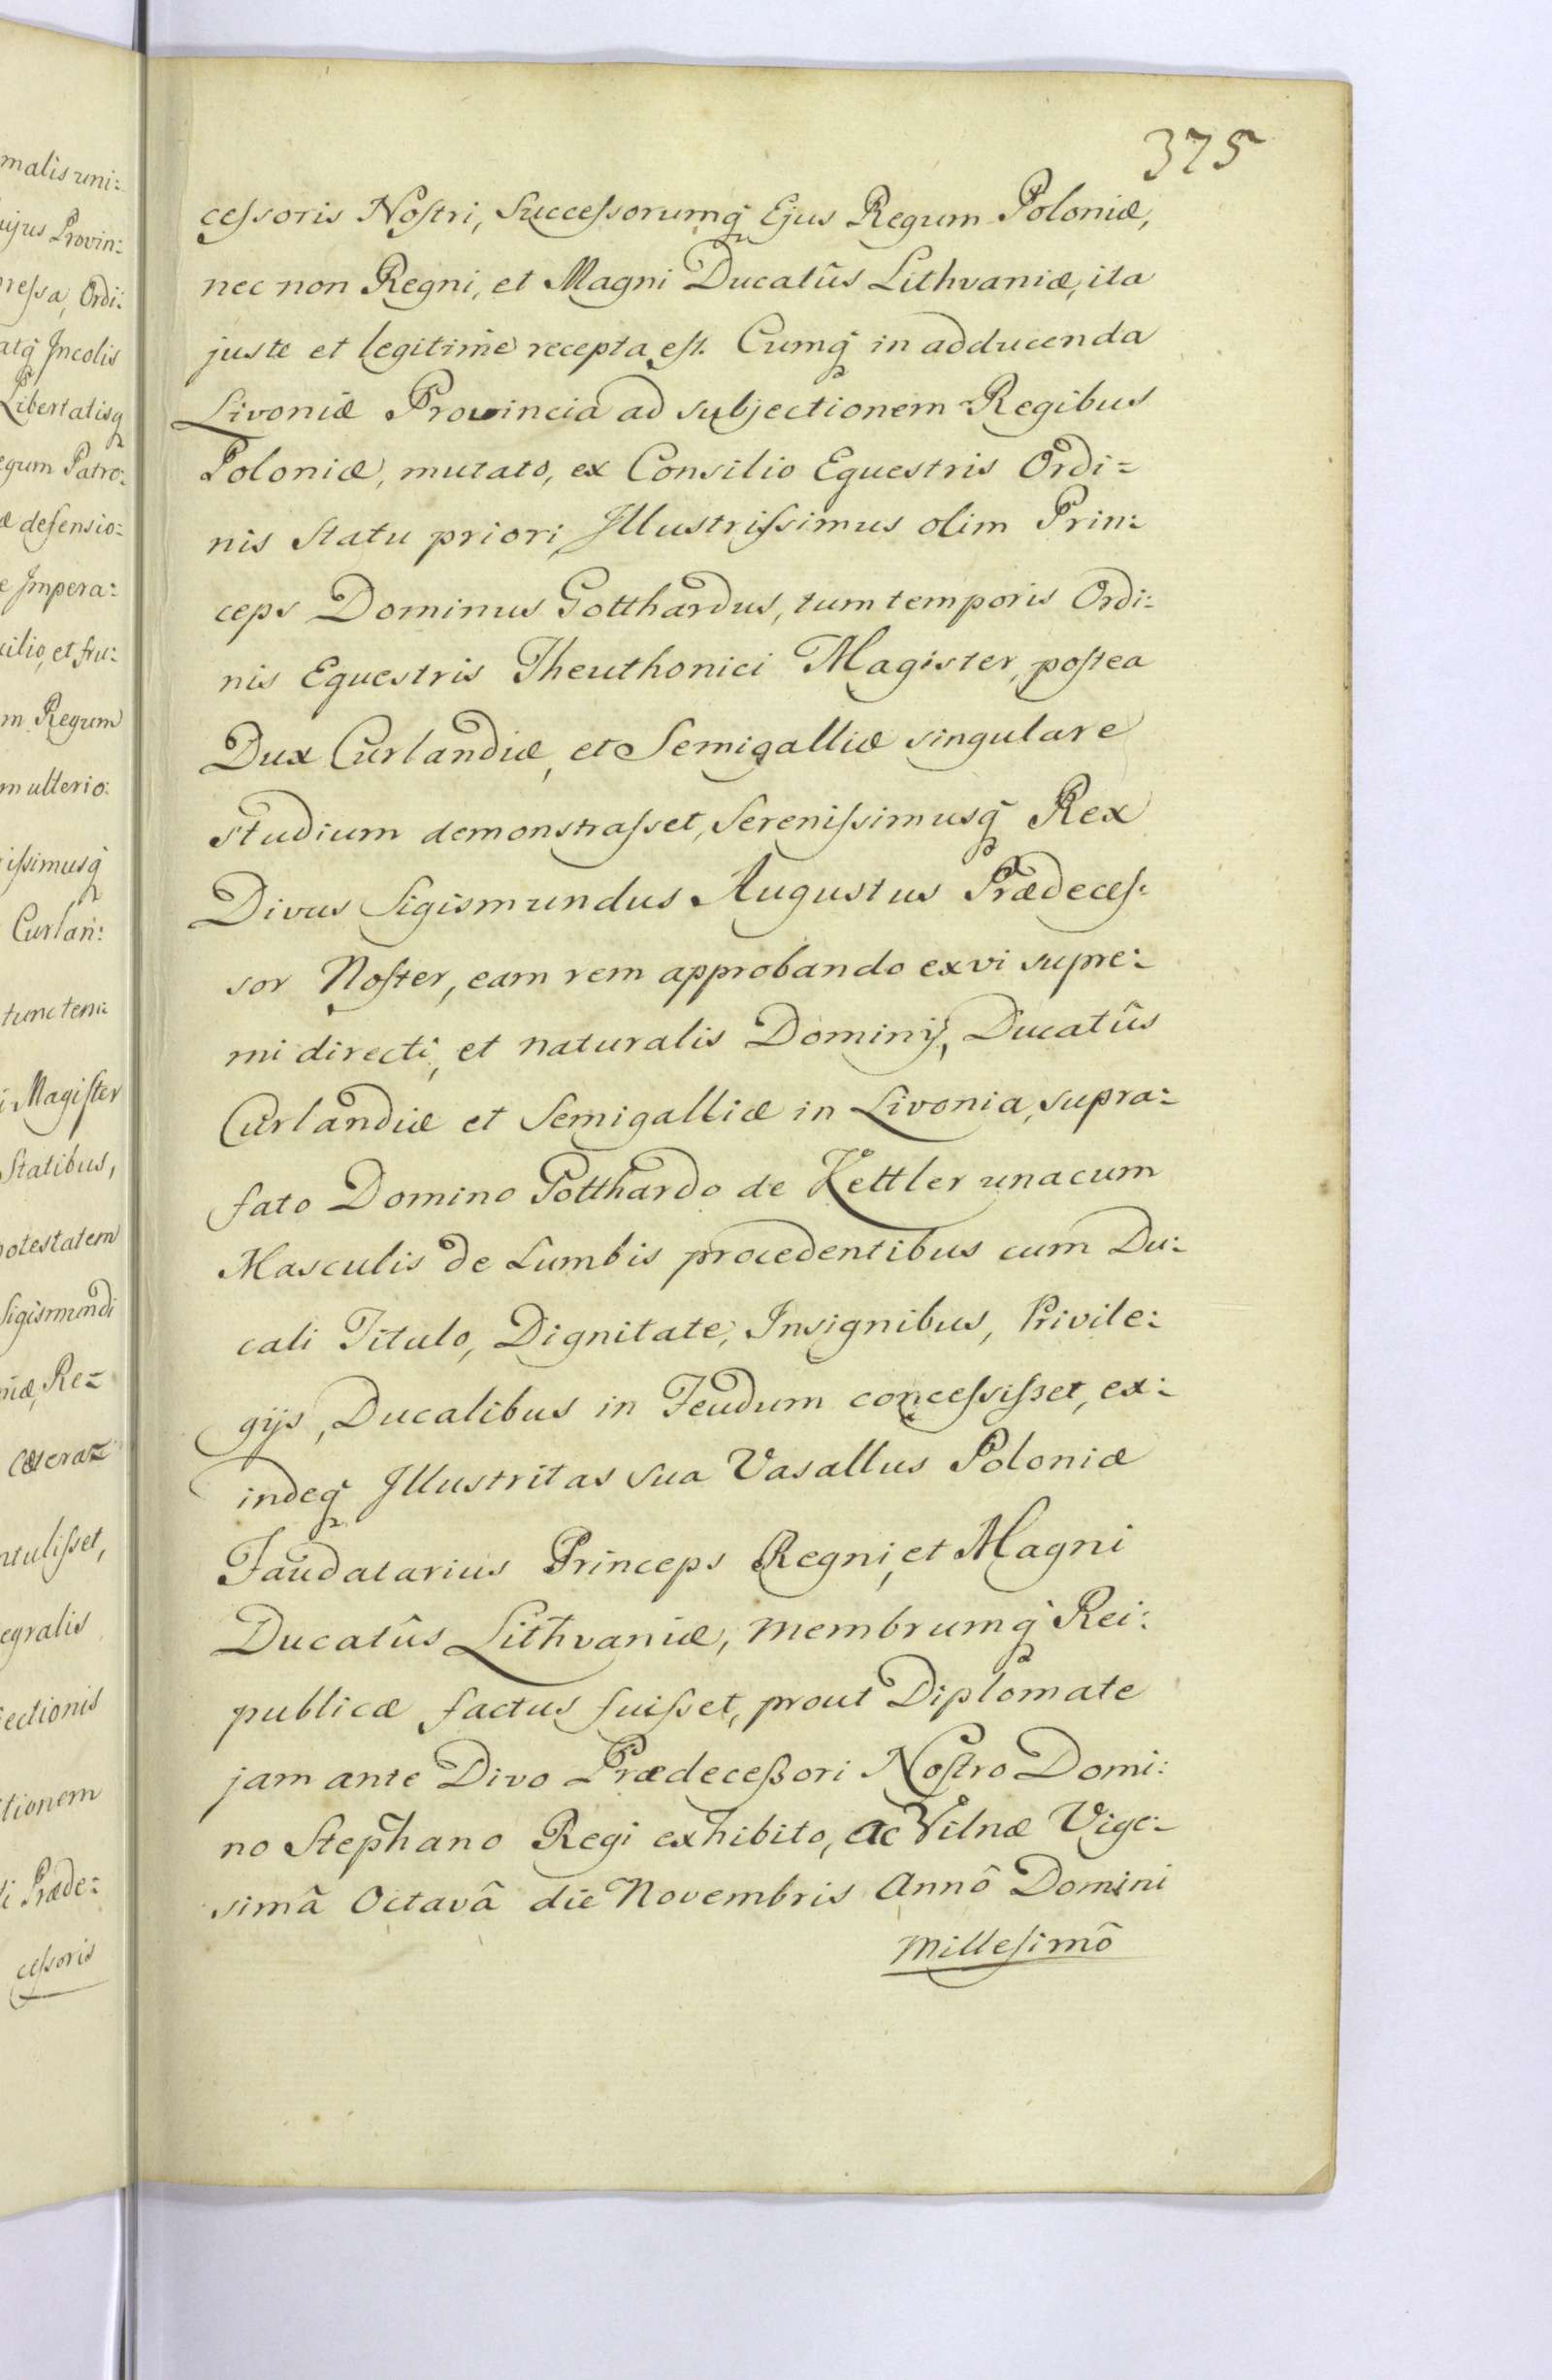 375
cessoris Nostri, Successorumq̃ Ejus Regum Poloniæ,
nec non Regni, et Magni Ducatûs Lithvaniæ, ita
juste et legitime recepta est. Cumq̃ in adducenda
Livoniæ Provincia ad subjectionem Regibus
Poloniæ, mutato, ex Consilio Equestris Ordi=
nis Statu priori, Illustrissimus olim Prin:
ceps Dominus Gotthardus, tum temporis Ordi:
nis Equestris Theuthonici Magister, postea
Dux Curlandiæ, et Semigalliæ singulare
studium demonstrasset, Serenissimusq̃ Rex
Divus Sigismundus Augustus Prædeces:
sor Noster, eam rem approbando ex vi supre:
mi directi, et naturalis Dominij, Ducatûs
Curlandiæ et Semigalliæ in Livonia, supra:
fato Domino Gotthardo de Kettler unacum
Masculis de Lumbis procedentibus cum Du:
cali Titulo, Dignitate, Insignibus, Privile:
gijs, Ducalibus in Feudum concessisset, ex:
indeq̃ Illustritas sua Vasallus Poloniæ
Faudatarius Princeps Regni, et Magni
Ducatûs Lithvaniæ, membrumq̃ Rei:
publicæ factus fuisset, prout Diplomate
jam ante Divo Prædecessori Nostro Domi:
no Stephano Regi exhibito, ac Vilnæ Vige:
simâ Octavâ die Novembris Annô Domini
Millesimô
malis uni:
ujus Provin:
messa, Ordi:
atq̃ Incolis
Libertatisq̃
egum Patro:
æ defensio:
e Impera:
uilio, et fru:
m Regum
m ulterio:
issimusq̃
Curlan:
tunc tem:
i Magister
Statibus,
potestatem
Sigismundi
niæ, Re=
cætera=
ntulisset,
egralis
jectionis
tionem
i Præde:
cessoris